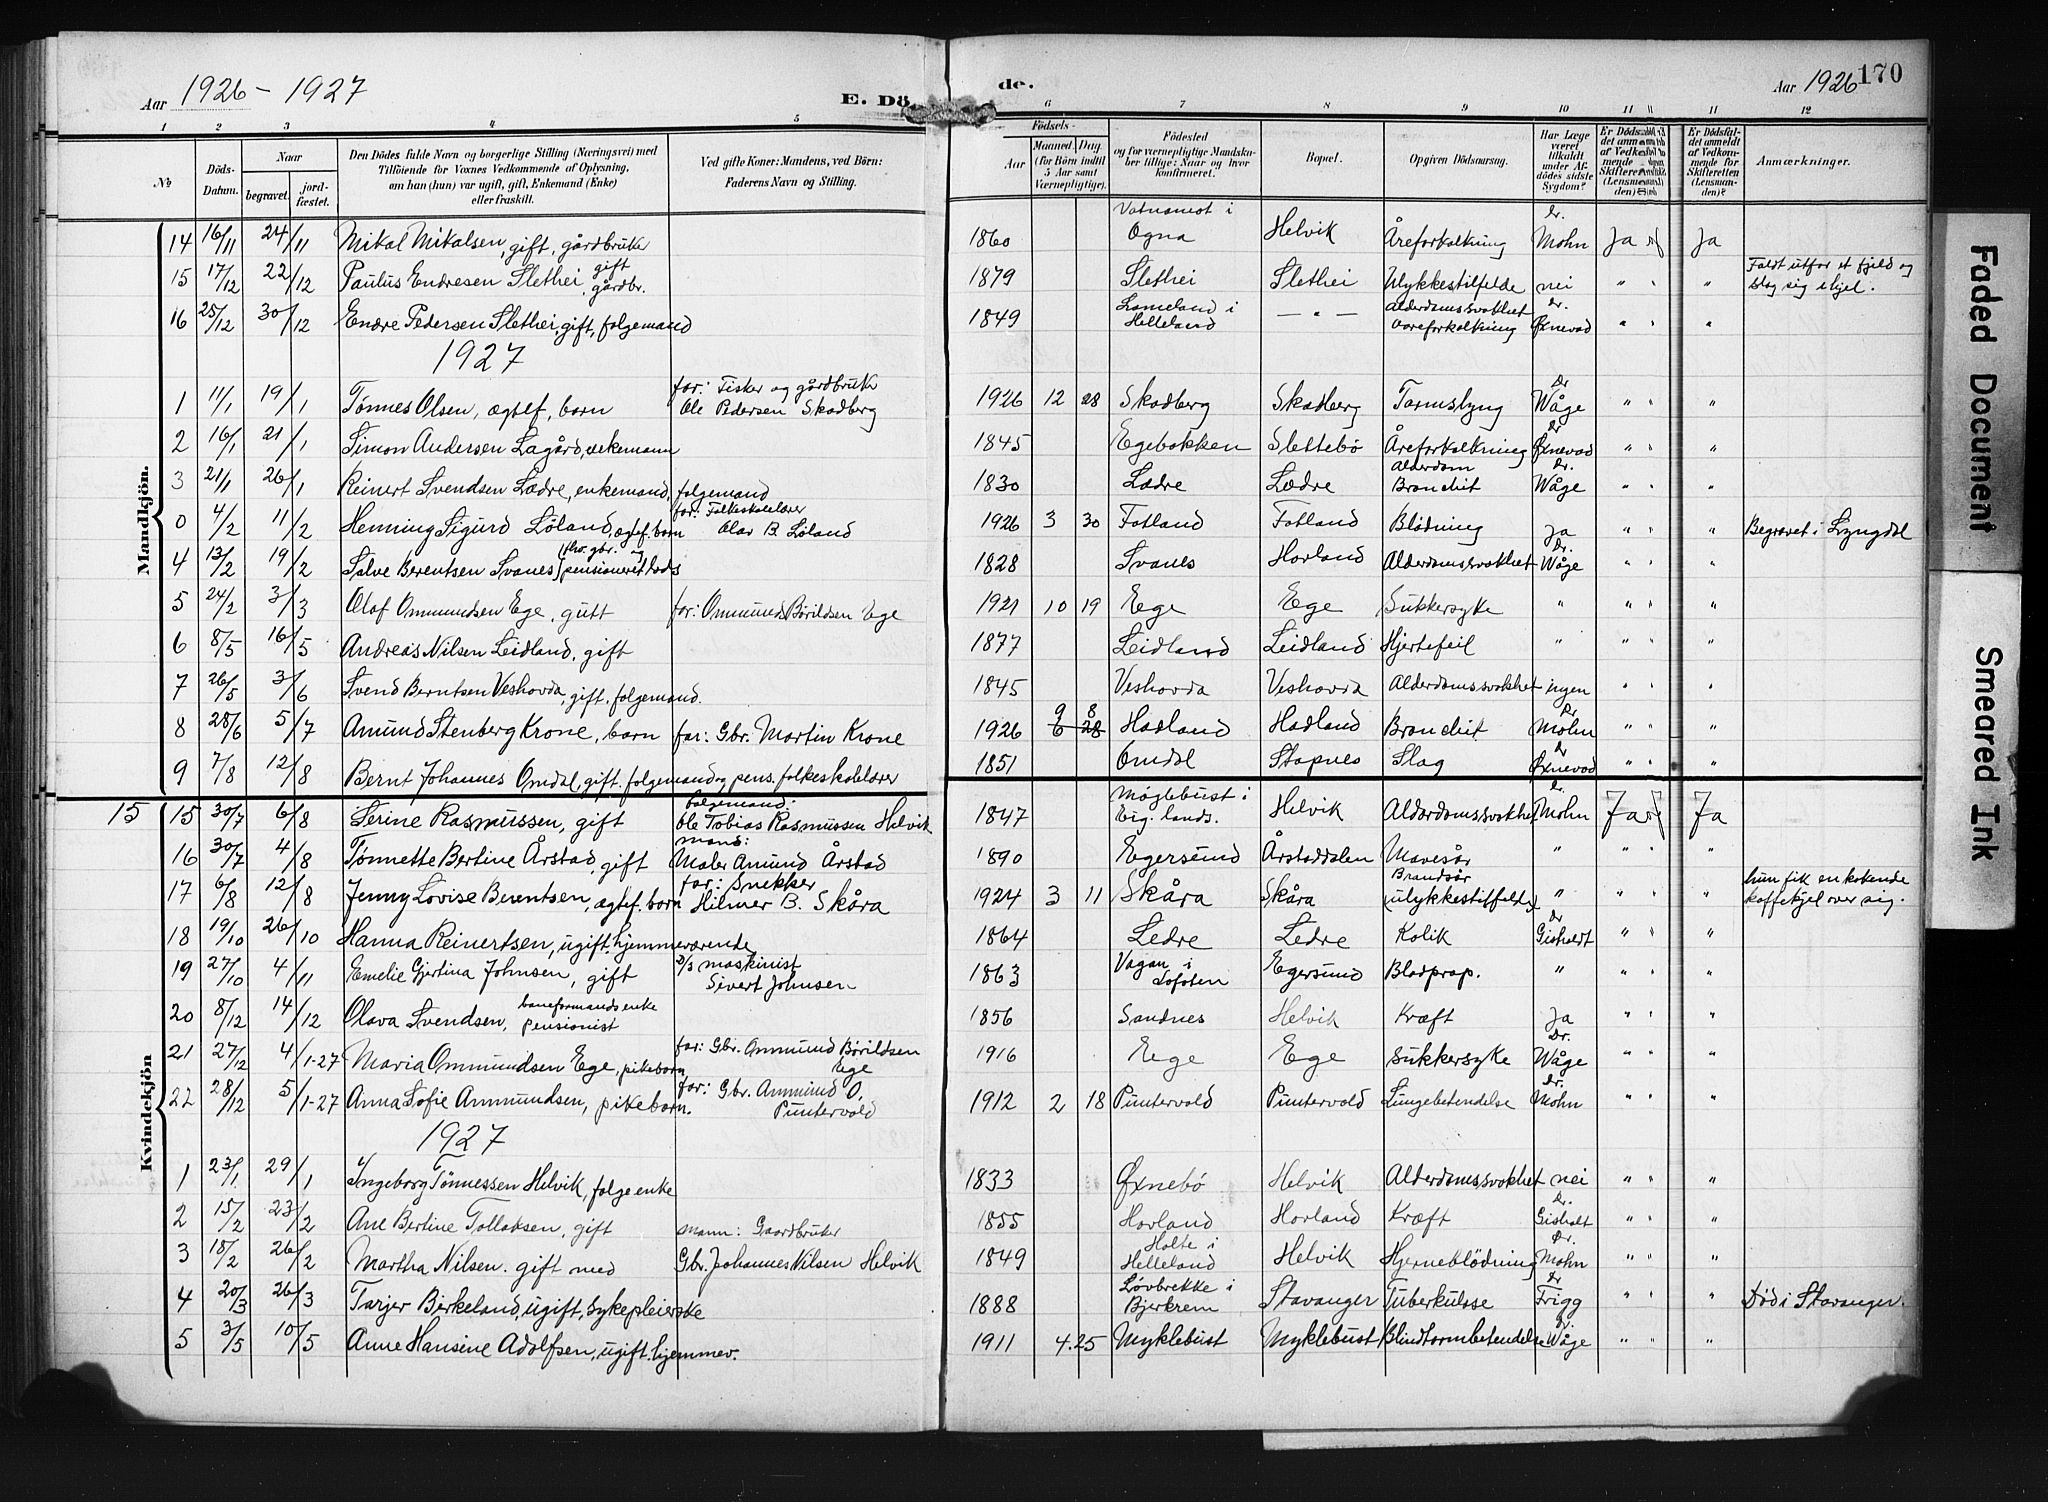 Aar 1926-1927
E. Dö
de.
Aar 1926 170
1 2 3 4 5 6 7 8 9 10 11 11 12
№
Döds-Datum.
Naar
begravet.
jordfæstet.
Den Dödes fulde Navn og borgerlige Stilling (Næringsvei) med
Tilföiende for Voxnes Vedkommende af Oplysning,
om han (hun) var ugift, gift, Enkemand (Enke)
eller fraskilt.
Ved gifte Koner: Mandens, ved Börn:
Faderens Navn og Stilling.
Födsels-
Aar
Maaned. Dag.
(for Börn indtil
5 Aar samt
Værnepligtige).
Födested
og for værnepligtige Mandskaber tillige: Naar og hvor
konfirmeret.
Bopæl.
Opgiven Dödsaarsag.
Har Læge
været
tilkaldt
under Afdödes sidste
Sygdom?
Er Dödsfaldet anmeldt
af Vedkommende for
Skifteretten
(Lensmanden)?
Anmærkninger.
Mandkjön.
14 16/11 24/11 Mikal Mikalsen, gift, gårdbruker 1860 Vatnamot i Ogna Helvik Åreforkalkning Dr. Mohn Ja Ja
15 17/12 22/12 Paulus Endresen Slethei, gift gårdbr. 1879 Slethei Slethei Ulykkestilfelde nei " " Faldt utfor et fjeld og slog sig ihjel.
16 25/12 30/12 Endre Pedersen Slethei, gift, folgemand 1849 Lomeland i Helleland — " — Alderdomssvakhet Aareforkalkning Dr. Øxnevad " "
1927
1 11/1 19/1 Tønnes Olsen, ægtef. barn far: Fisker og gårdbruker Ole Pedersen Skadberg 1926 12 28 Skadberg Skadberg Tarmslyng Dr Wåge " "
2 16/1 21/1 Simon Andersen Lagård, enkemann 1845 Egebakken Slettebø Åreforkalkning Dr Øxnevad " "
3 21/1 26/1 Reinert Svendsen Lædre, enkemand, folgemand 1830 Lædre Lædre Alderdom Bronchit Dr. Wåge " "
0 4/2 11/2 Henning Sigurd Löland, ægtef. barn far: Folkeskolelærer Olav B. Löland 1926 3 30 Fotland Fotland Blödning Ja " " Begravet i Lyngdal
4 13/2 19/2 Salve Berentsen Svanes (fhv. gbr. og pensioneret lods 1828 Svanes Hovland Alderdomssvakhet Dr. Wåge " "
5 24/2 3/3 Olaf Ommundsen Ege, gutt far: Ommund Børildsen Ege 1921 10 19 Ege Ege Sukkersyke " " "
6 8/5 16/5 Andreas Nilsen Leidland, gift 1877 Leidland Leidland Hjertefeil " " "
7 26/5 3/6 Svend Berntsen Veshovda, gift, folgemand. 1845 Veshovda Veshovda Alderdomssvakhet ingen " "
8 28/6 5/7 Amund Stenberg Krone, barn far: Gbr. Martin Krone 1926 9 8 6 28 Hadland Hadland Bronchit Dr Mohn " "
9 7/8 12/8 Bernt Johannes Omdal, gift. folgemand og pens. folkeskolelærer 1851 Omdal Stapnes Slag Dr Øxnevad " "
Kvindekjön
15 15 30/7 6/8 Serine Rasmussen, gift folgemand: Ole Tobias Rasmussen Helvik 1847 Møglebust i Eig. lands. Helvik Alderdomssvakhet Dr. Mohn Ja Ja
16 30/7 4/8 Tønnette Bertine Årstad, gift mand: Maler Amund Årstad 1890 Egersund Årstaddalen Mavesår " " "
17 6/8 12/8 Jenny Lovise Berentsen, ægtef. barn far: Snekker Hilmer B. Skåra 1924 3 11 Skåra Skåra Brandsår (ulykkestilfelde) " " " hun fik en kokende kaffekjel over sig.
18 19/10 26/10 Hanna Reinertsen, ugift, hjemmeværende 1864 Ledre Ledre Kolik Dr Gisholdt " "
19 27/10 4/11 Emelie Gjertina Johnsen, gift D/S maskinist Sivert Johnsen 1863 Vågan i Lofoten Egersund Blodprop. " " "
20 8/12 14/12 Olava Svendsen, baneformandsenke pensionist 1856 Sandnes Helvik Kræft Ja " "
21 27/12 4/1-27 Maria Ommundsen Ege, pikebarn, far: Gbr. Ommund Børildsen Ege 1916 Ege Ege Sukkersyke Dr. Wåge " "
22 28/12 5/1-27 Anna Sofie Ammundsen, pikebarn. far: Gbr. Ammund O. Puntervold 1912 2 18 Puntervold Puntervold Lungebetendelse Dr. Mohn " "
1927
1 23/1 29/1 Ingeborg Tønnessen Helvik, folgeenke 1833 Øxnebø Helvik Alderdomssvakhet nei " "
2 15/2 23/2 Ane Bertine Tollaksen, gift mann: Gaardbruker 1855 Hovland Hovland Kræft Dr. Gisholt " "
3 18/2 26/2 Martha Nilsen. gift med Gbr. Johannes Nilsen Helvik 1849 Holte i Helleland Helvik Hjerneblödning Dr. Mohn " "
4 20/3 26/3 Tarjer Birkeland, ugift, sykepleierske 1888 Løvbrekke i Bjerkrem Stavanger Tuberkulose Dr Frigg " " Död i Stavanger.
5 3/5 10/5 Anne Hansine Adolfsen, ugift. hjemmev. 1911 4. 25 Myklebust Myklebust Blindtarmbetendelse Dr. Wåge " "
Faded Document
Smeared Ink